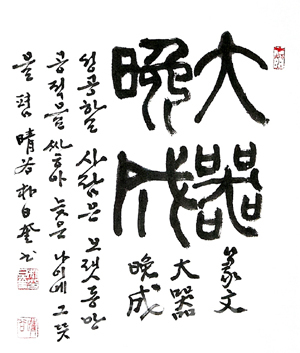 大器
晩成
篆文
大器
晩成
성공할 사람은 오랫동안
공적을 쌓아 늦은 나이에 그 뜻
을 폄 晴谷 朴日奎